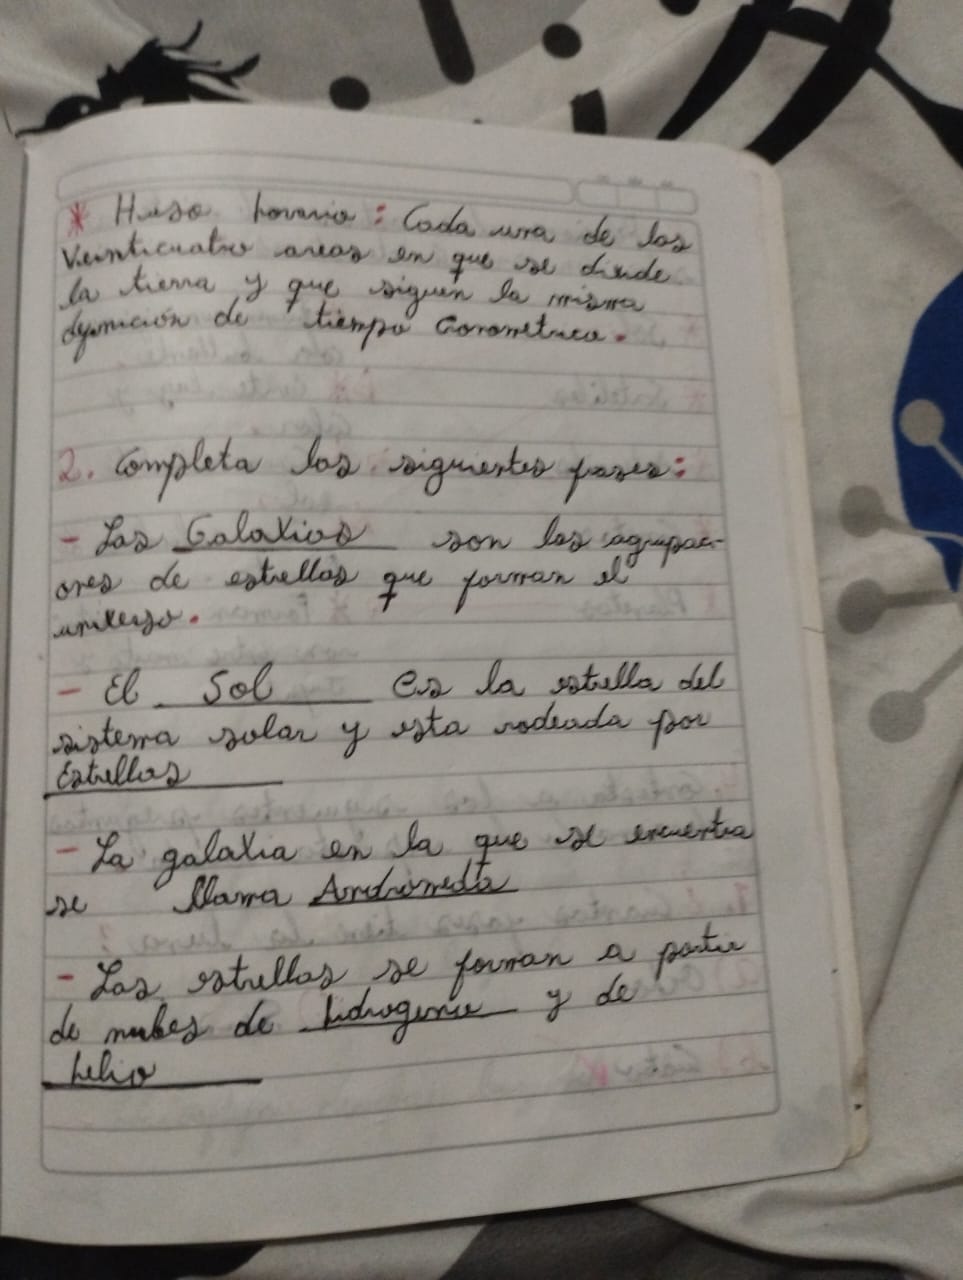 * Huso horario: Cada una de las
veinticuatro areas en que se divide
la tierra y que siguen la misma
definición de tiempo Coronometrico.
2. Completa las siguientes frases:
- Las Galaxias son las agrupaci-
ones de estrellas que forman el
universo.
- El Sol es la estrella del
sistema solar y esta rodeada por
Estrellas
- La galaxia en la que se encuentra
se llama Andrómeda
- Las estrellas se forman a partir
de nubes de hidrogeno y de
helio